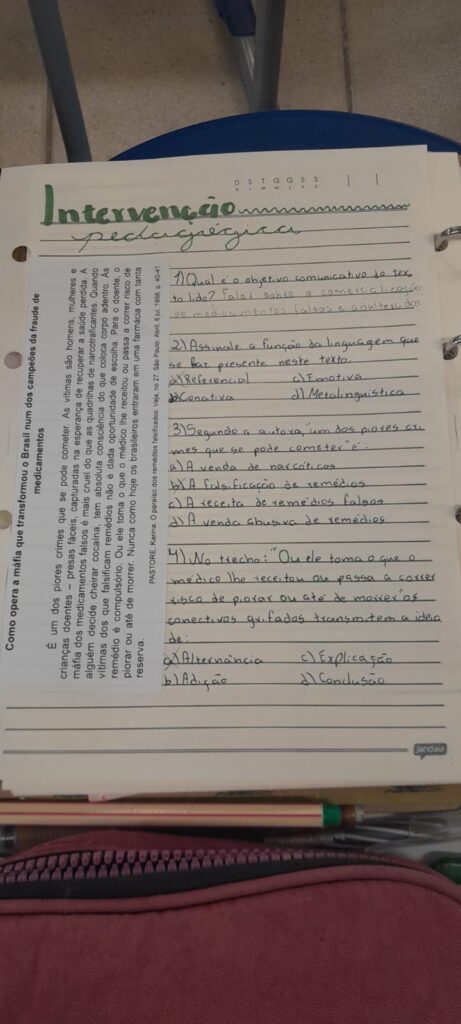 Intervenção
pedagógica
D S T Q Q S S
Como opera a máfia que transformou o Brasil num dos campeões da fraude de
medicamentos
É um dos piores crimes que se pode cometer. As vítimas são homens, mulheres e
crianças doentes – presas fáceis, capturadas na esperança de recuperar a saúde perdida. A
máfia dos medicamentos falsos é mais cruel do que as quadrilhas de narcotraficantes. Quando
alguém decide cheirar cocaína, tem absoluta consciência do que coloca corpo adentro. Às
vítimas dos que falsificam remédios não é dada oportunidade de escolha. Para o doente, o
remédio é compulsório. Ou ele toma o que o médico lhe receitou ou passa a correr risco de
piorar ou até de morrer. Nunca como hoje os brasileiros entraram em uma farmácia com tanta
reserva.
PASTORE, Karina. O paraíso dos remédios falsificados. Veja, no 27. São Paulo: Abril, 8 jul. 1998, p. 40-41.
1) Qual é o objetivo comunicativo do tex-
to lido? Falar sobre a comercialização
de medicamentos falsos e adulterados
2) Assinale a função da linguagem que
se faz presente neste texto
a) Referencial c) Emotiva
b) Conativa d) Metalinguística
3) Segundo a autora, "um dos piores cri-
mes que se pode cometer" é:
a) A venda de narcóticos
b) A falsificação de remédios
c) A receita de remédios falsos
d) A venda abusiva de remédios
4) No trecho: "Ou ele toma o que o
médico lhe receitou ou passa a correr
risco de piorar ou até de morrer" os
conectivos grifados transmitem a ideia
de:
a) Alternância c) Explicação
b) Adição d) Conclusão
jandaia